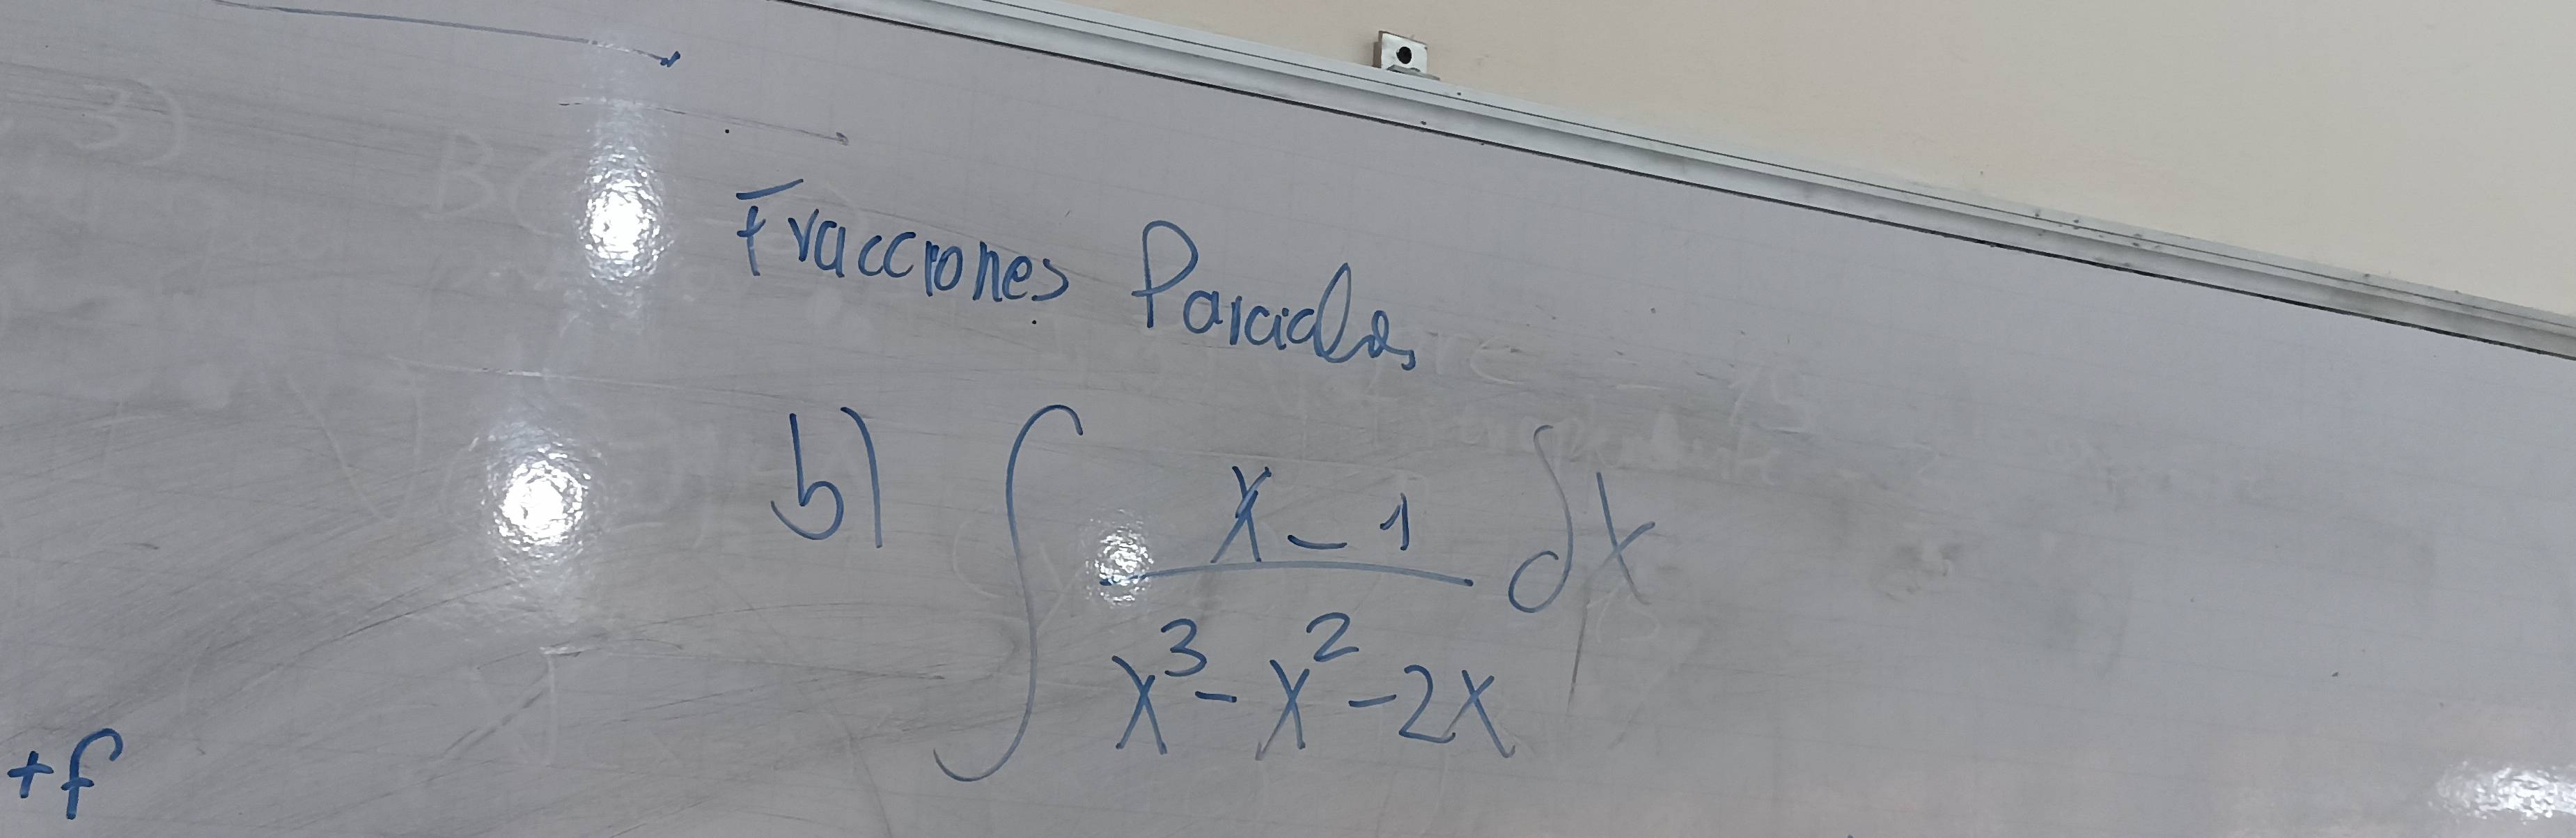 Fracciones Parciales
b) ∫ x-1 dx
x³-x²-2x
+f